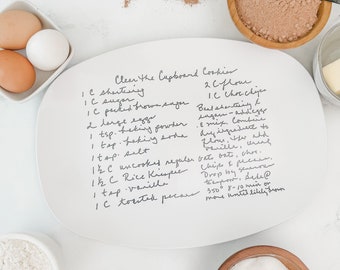 Clean the Cupboard Cookies
1 C shortening
1 C sugar
1 C packed brown sugar
2 large eggs
1 tsp. baking powder
1 tsp. baking soda
1 tsp. salt
1 ½ C uncooked regular
1 ½ C Rice Krispies
1 tsp. vanilla
1 C toasted pecans
2 C flour
1 C choc chips
Beat shortening &
sugars - add eggs
& mix. Combine
dry ingredients to
flour. Add
vanilla,
oats, choc.
chips & pecans.
Drop by
teaspoon. Bake @
350° 8-10 min or
more until lightly brown